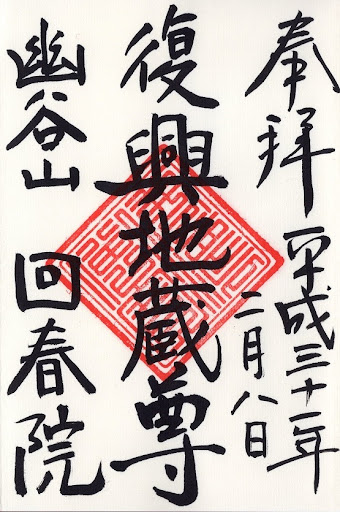 奉拝 平成三十一年
二月八日
復興地蔵尊
幽谷山 回春院